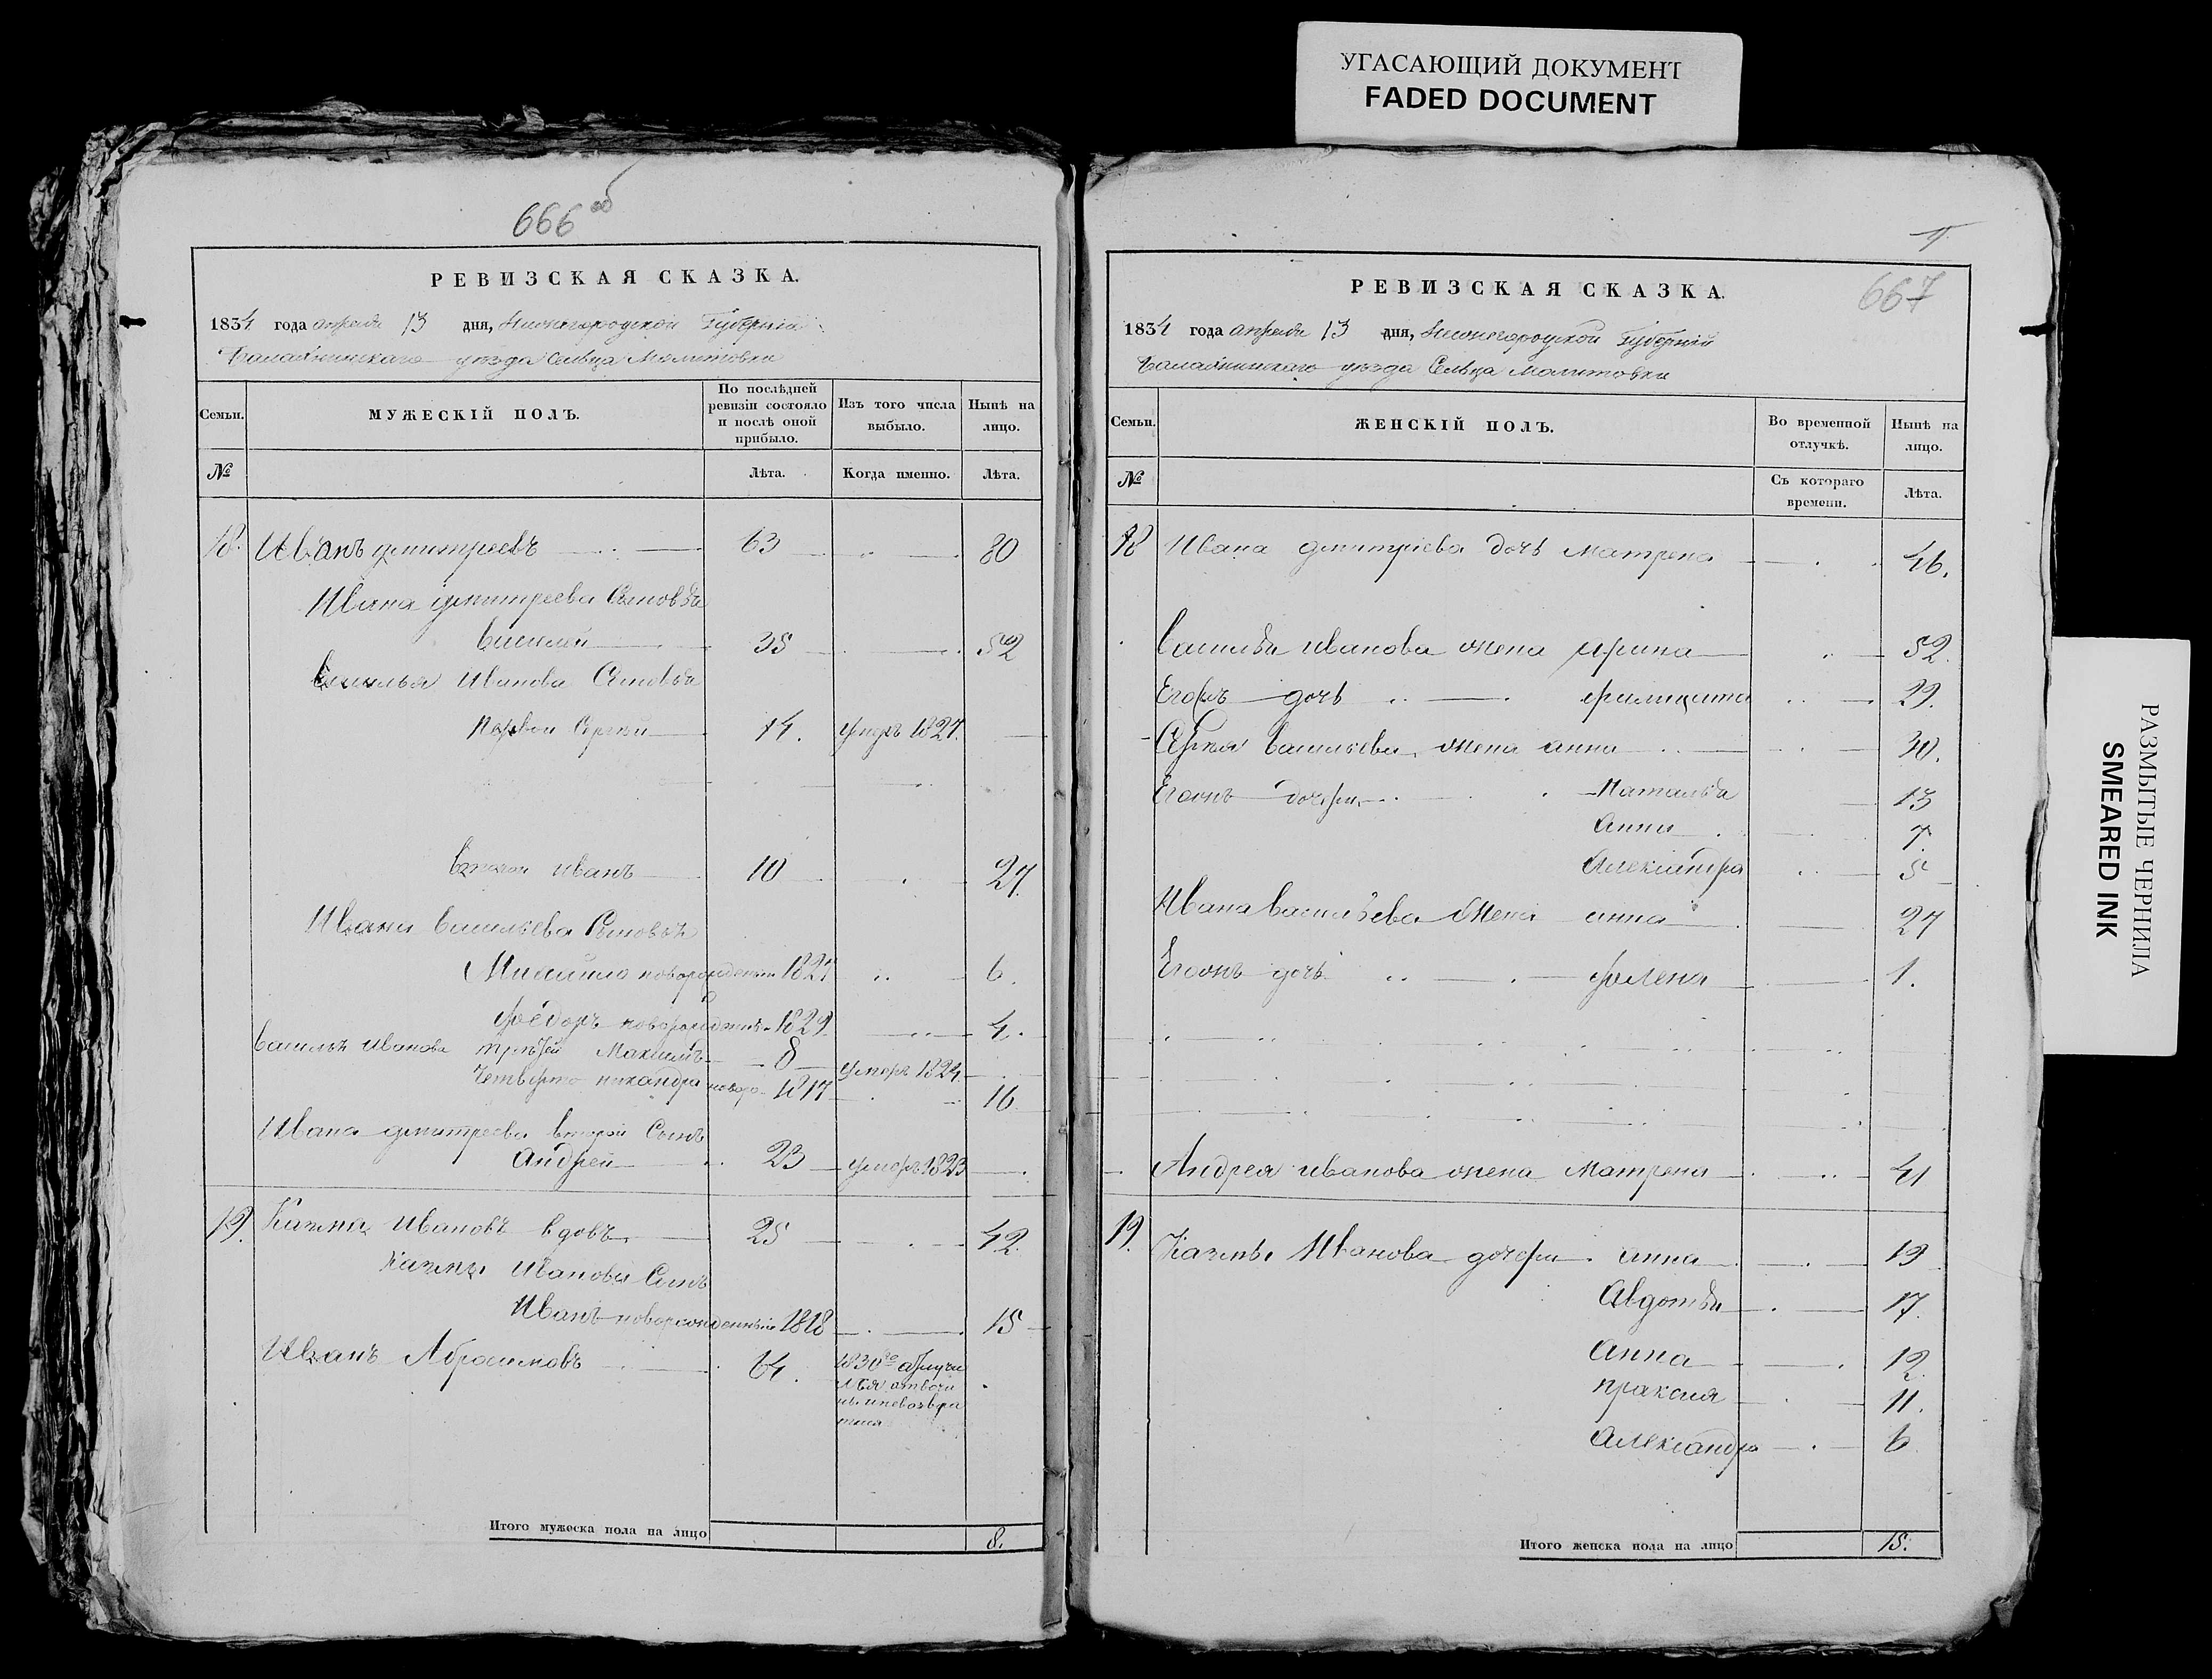 УГАСАЮЩИЙ ДОКУМЕНТ
FADED DOCUMENT
666 об
РЕВИЗСКАЯ СКАЗКА.
1834 года апреля 13 дня, Нижегородской Губернiи
Балахнинскаго уезда Сельца Молитовки
Семьи.
МУЖЕСКІЙ ПОЛЪ.
По послѣдней ревизіи состояло и послѣ оной прибыло.
Изъ того числа выбыло.
Нынѣ на лицо.
№
Лѣта.
Когда именно.
Лѣта.
18. Иванъ дмитреевъ 63 80
Ивана дмитреева Сыновья
Василей 35 52
Василья Иванова Сыновья
Первой Сергей 14. умеръ 1827.
Второй Иванъ 10 27.
Ивана Васильева Сыновья
Михайло новорожденный 1827 6.
Фёдоръ новорожденъ 1829 4.
Василья Иванова третей Максимъ 8 умеръ 1824.
Четверто никандра новоро 1817 16
Ивана дмитреева второй Сынъ
Андрей 23 умеръ 1823
19. Казма Ивановъ вдовъ 25 42.
Казмы Иванова Сынъ
Иванъ новорожденный 1818 15
Иванъ Абросимовъ 64. 1830го
Итого мужеска пола на лицо 8.
667
РЕВИЗСКАЯ СКАЗКА.
1834 года апреля 13 дня, Нижегородской Губерніи
Балахнинскаго уезда Сельца Молитовки
Семьи.
ЖЕНСКІЙ ПОЛЪ.
Во временной отлучкѣ.
Нынѣ на лицо.
№
Съ котораго времени.
Лѣта.
18 Ивана дмитріева дочь матрена 46.
Василья иванова жена ирина 52.
Егоръ дочь филицата 29.
Сергея васильева жена анна 30.
Егонъ дочери Наталья 13
Анна 7.
Александра 5
Ивана васильева жена анна 27
Егонъ дочь фолена 1.
Андрея иванова жена Матрена 41
19. Казмы Иванова дочери анна 19
Авдотья 17.
Анна 12.
праксия 11.
Александра 6
Итого женска пола на лицо 15.
РАЗМЫТЫЕ ЧЕРНИЛА
SMEARED INK